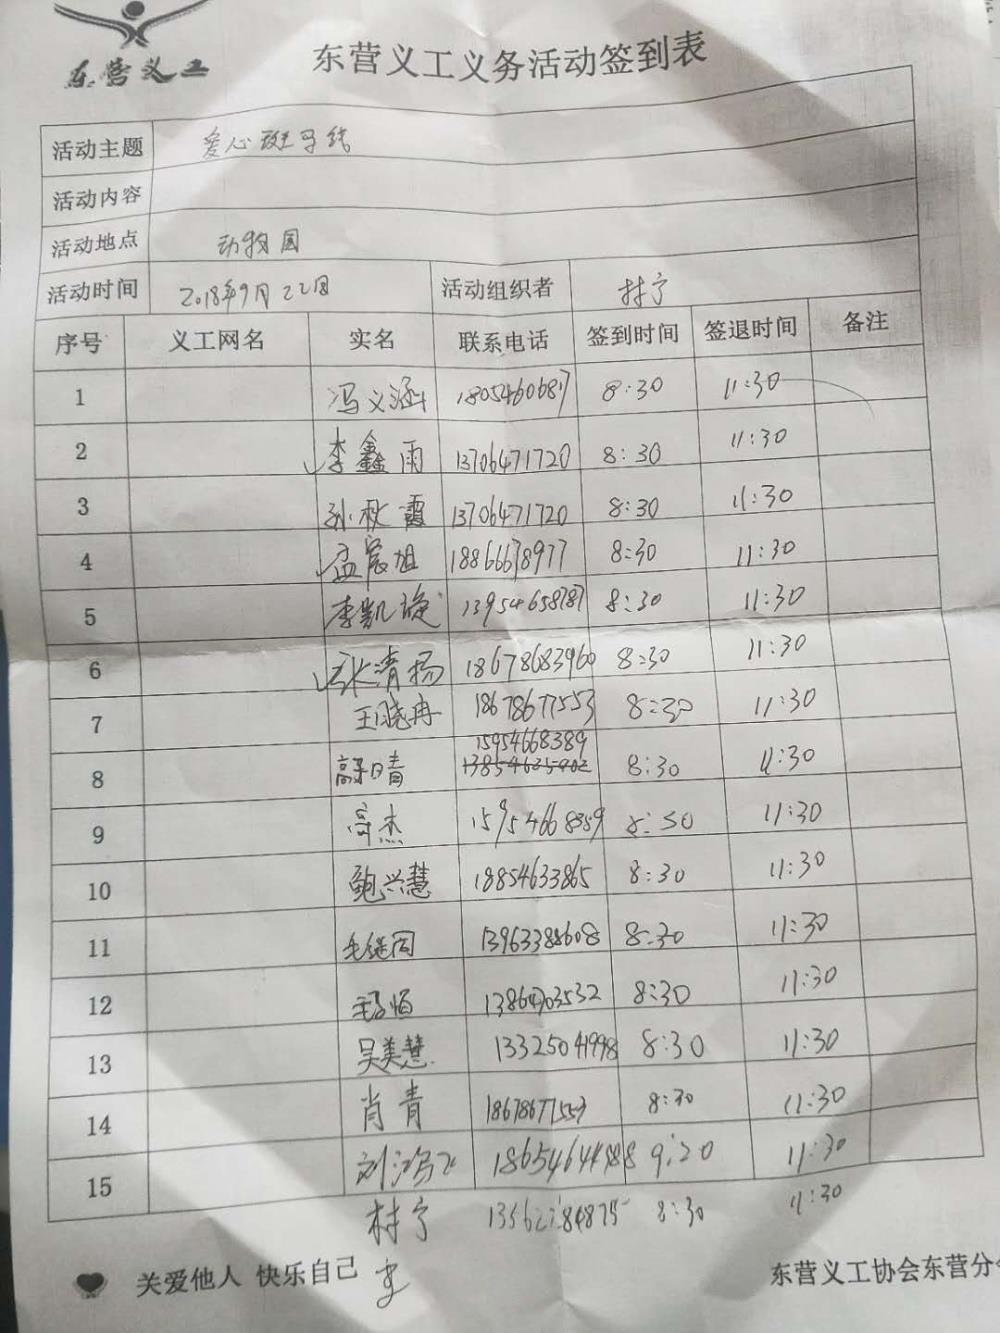 东营义工
东营义工义务活动签到表
活动主题 爱心斑马线
活动内容
活动地点 动物园
活动时间 2018年9月22日 活动组织者 林宁
序号 义工网名 实名 联系电话 签到时间 签退时间 备注
1 冯义涵 18054606817 8:30 11:30
2 李鑫雨 13706471720 8:30 11:30
3 孙秋霞 13706471720 8:30 11:30
4 孟宸旭 18866678977 8:30 11:30
5 李凯旋 13954658787 8:30 11:30
6 张清扬 18678683960 8:30 11:30
7 王晓冉 18678677553 8:30 11:30
8 高晴 15954668389 8:30 11:30
9 高杰 15954668359 8:30 11:30
10 鲍兴慧 18854633865 8:30 11:30
11 毛继同 13963388608 8:30 11:30
12 13864703532 8:30 11:30
13 吴美慧 13325041998 8:30 11:30
14 肖青 18678677553 8:30 11:30
15 刘鸿飞 18654644888 9:20 11:30
林宁 8:30 11:30
关爱他人 快乐自己
东营义工协会东营分